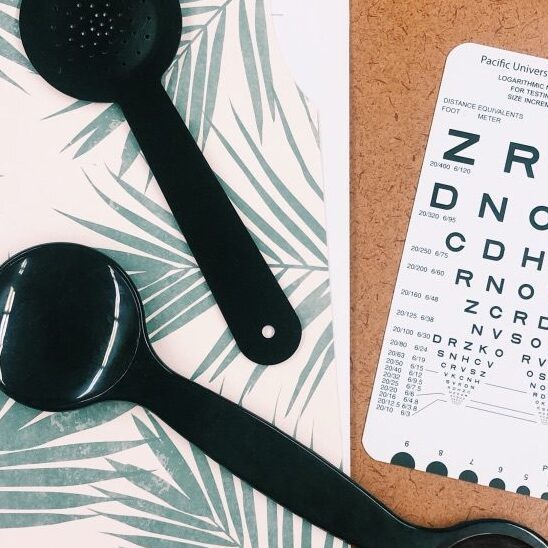 Pacific Univers
LOGARITHMIC
FOR TESTIN
SIZE INCREM
DISTANCE EQUIVALENTS
FOOT METER
Z R
20/400 6/120
D N
20/320 6/95
C D H
20/250 6/75
R N O
20/200 6/60
Z C R D
20/160 6/48
N V S O
20/125 6/38
D R Z K O R V
20/100 6/30
S N H C V O S
20/80 6/24
C R V S Z N O
20/63 6/19
V K C N H
20/50 6/15
20/40 6/12
20/32 6/9.5
20/25 6/7.5
20/20 6/6
20/16 6/4.8
20/12.5 6/3.8
20/10 6/3
9 8 7 6 5